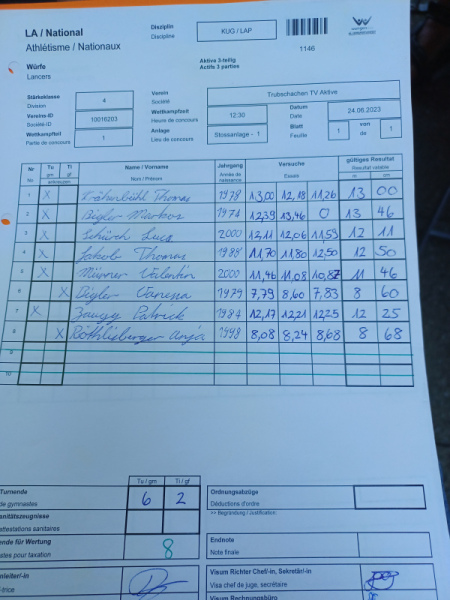 LA / National
Athlétisme / Nationaux
Disziplin
Discipline
KUG / LAP
1146
Würfe
Lancers
Aktive 3-teilig
Actifs 3 parties
Stärkeklasse
Division
4
Verein
Société
Trubschachen TV Aktive
Vereins-ID
Société-ID
10016203
Wettkampfzeit
Heure de concours
12:30
Datum
Date
24.06.2023
Wettkampfteil
Partie de concours
1
Anlage
Lieu de concours
Stossanlage - 1
Blatt
Feuille
1
von
de
1
Nr
No
Tu
gm
Ti
gf
Name / Vorname
Nom / Prénom
Jahrgang
Année de naissance
Versuche
Essais
gültiges Resultat
Résultat valable
m
cm
1 X Thomas 1978 13,00 12,18 11,26 13 00
2 X Bigler Markus 1974 12,39 13,46 0 13 46
3 X Schürch Luca 2000 12,11 12,06 11,53 12 11
4 X Jakob Thomas 1988 11,70 11,80 12,50 12 50
5 X Valentin 2000 11,46 11,08 10,87 11 46
6 X Bigler Vanessa 1979 7,79 8,60 7,83 8 60
7 X Zaugg Patrick 1984 12,17 12,21 12,25 12 25
8 X Röthlisberger Anja 1998 8,08 8,24 8,68 8 68
9
10
Tu / gm
Ti / gf
Turnende
de gymnastes
6 2
Ordnungsabzüge
Déductions d'ordre
>> Begründung / Justification:
attestations sanitaires
ende für Wertung
8
Endnote
Note finale
Visum Richter Chef/-in, Sekretär/-in
Visa chef de juge, secrétaire
Visum Rechnungsbüro